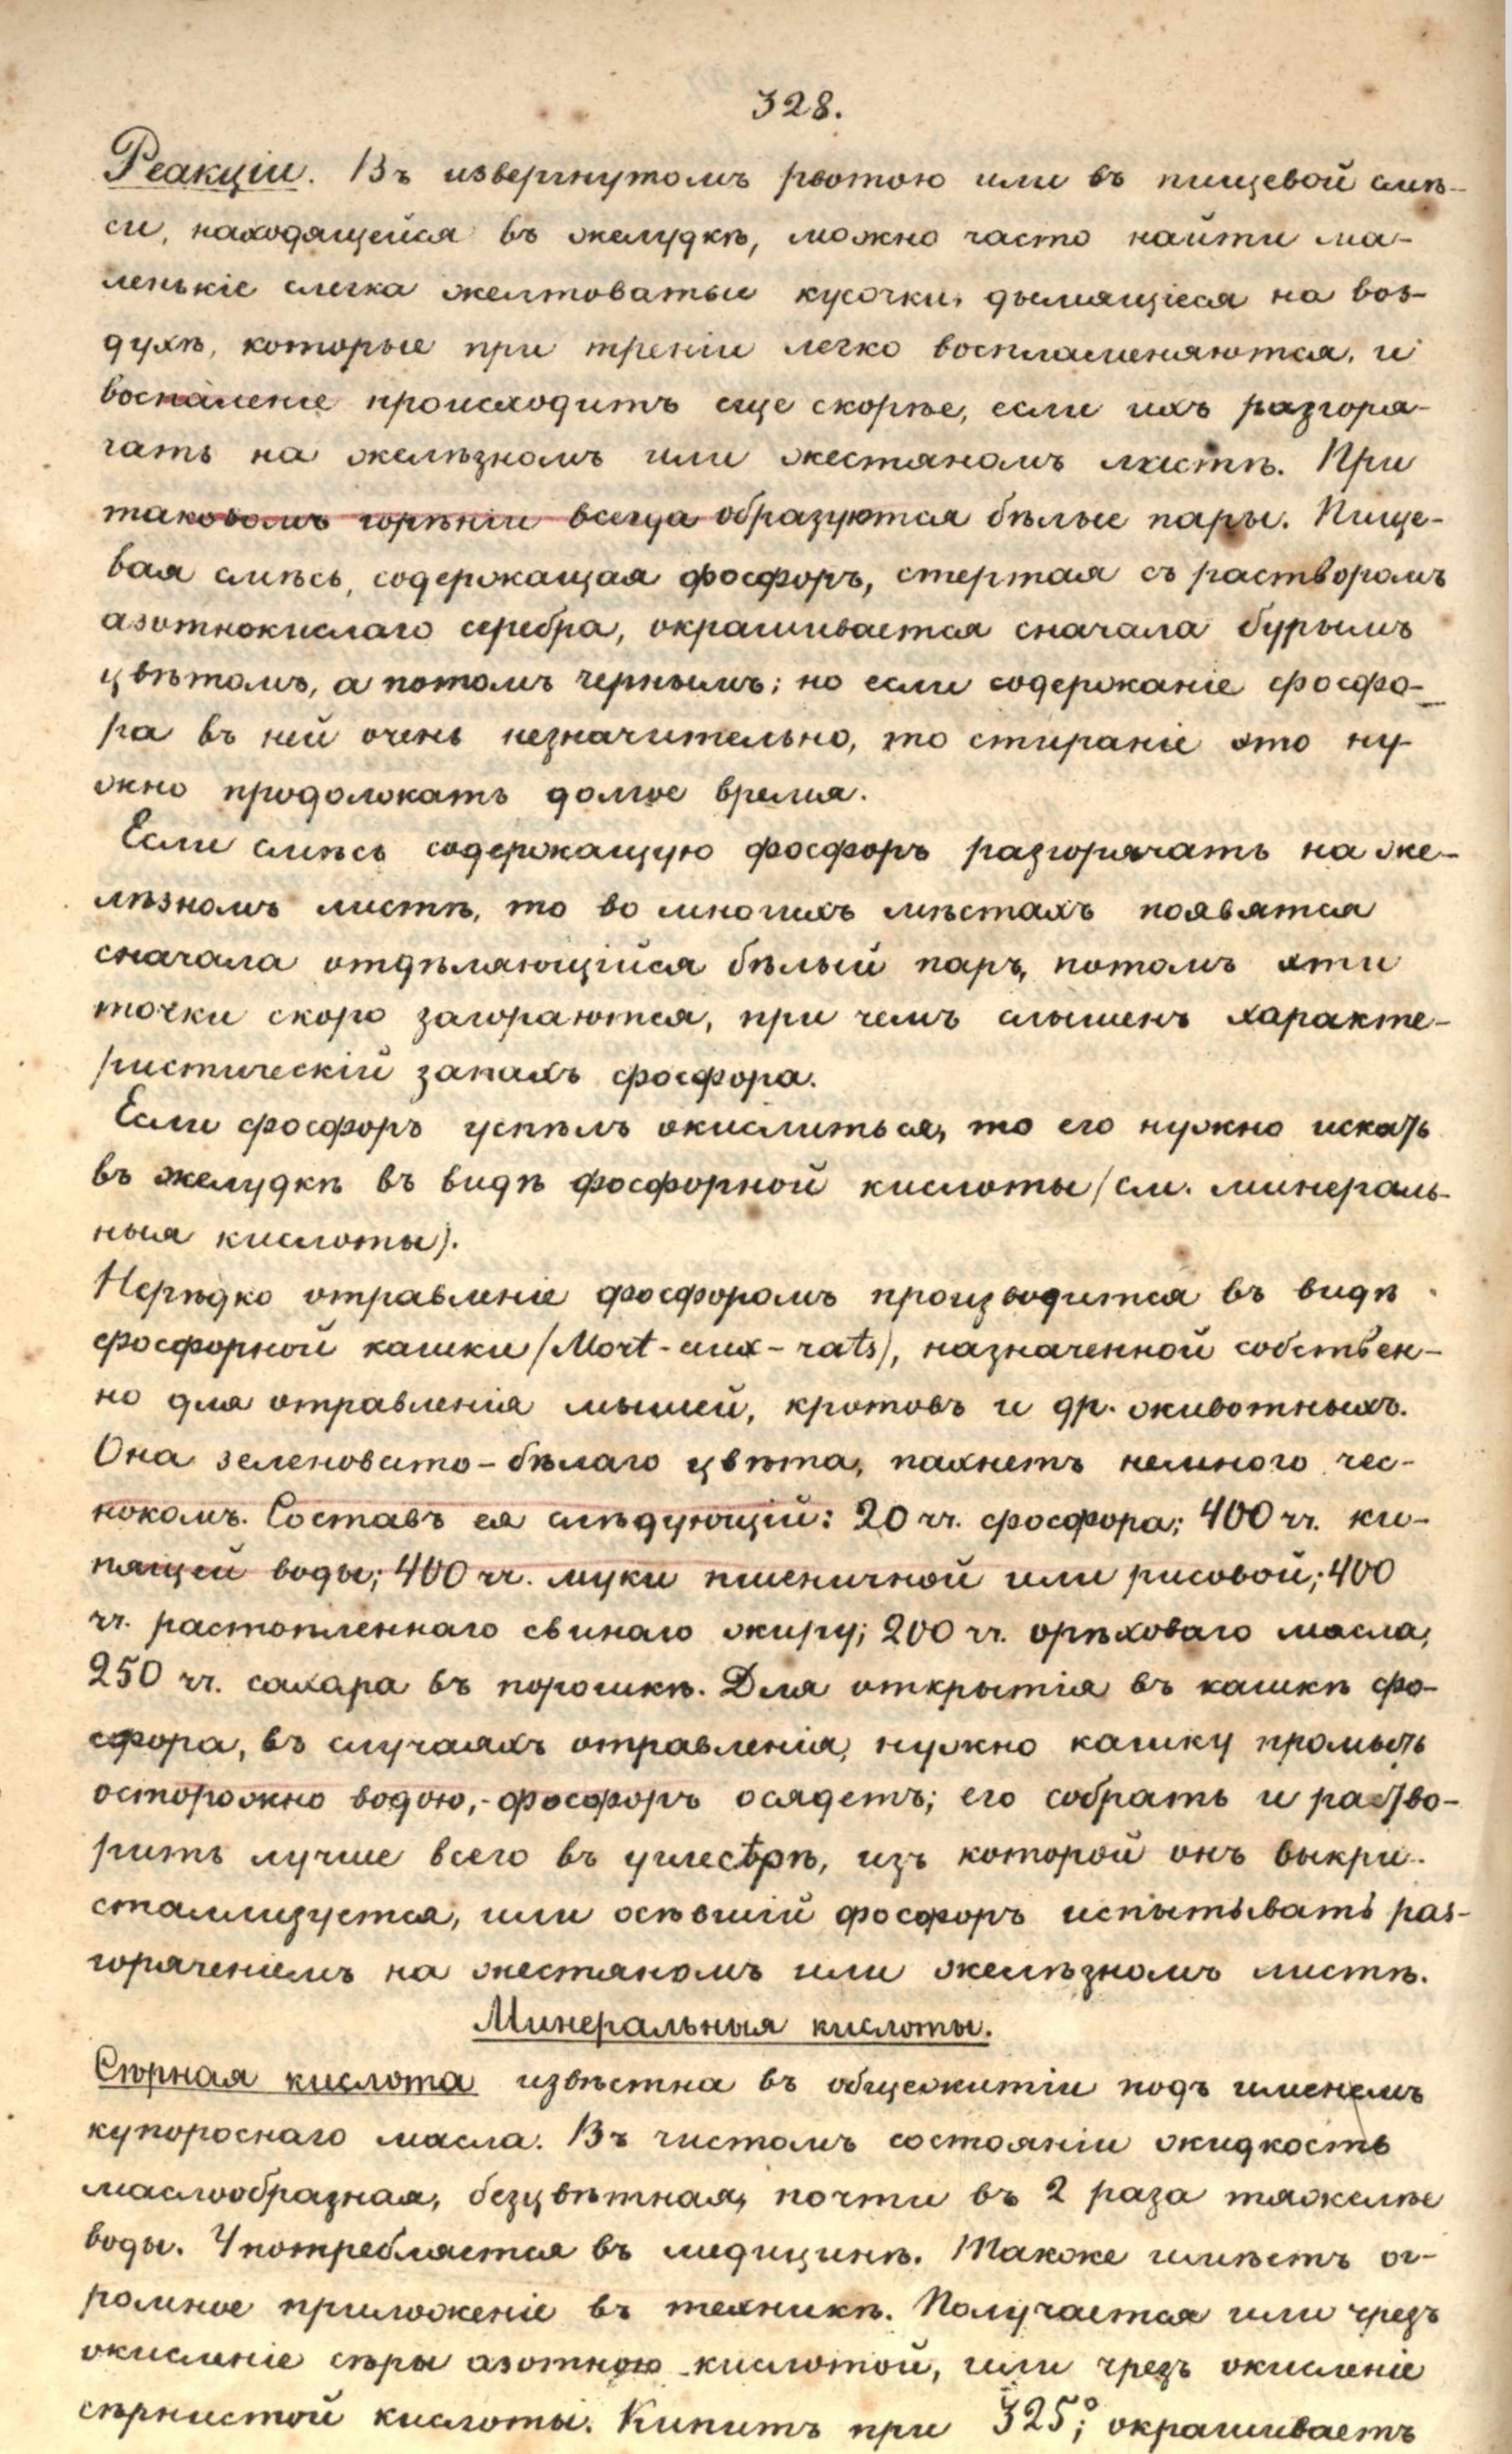 328.
Реакціи. Въ извергнутомъ рвотою или въ пищевой смѣ-
си, находящейся въ желудкѣ, можно часто найти ма-
ленькіе слегка желтоватые кусочки, дымящіеся на воз-
духѣ, которые при треніи легко воспламеняются, и
воспаленіе происходитъ еще скорѣе, если ихъ разгоря-
чать на желѣзномъ или жестяномъ листѣ. При
таковомъ горѣніи всегда образуются бѣлые пары. Пище-
вая смѣсь, содержащая фосфоръ, стертая съ растворомъ
азотнокислаго серебра, окрашивается сначала бурымъ
цвѣтомъ, а потомъ чернымъ; но если содержаніе фосфо-
ра въ ней очень незначительно, то стираніе это ну-
жно продолжать долгое время.
Если смѣсь содержащую фосфоръ разгорячать на же-
лѣзномъ листѣ, то во многихъ мѣстахъ появятся
сначала отдѣляющійся бѣлый паръ, потомъ эти
точки скоро загораются, при чемъ слышенъ характе-
ристическій запахъ фосфора.
Если фосфоръ успѣлъ окислиться, то его нужно искать
въ желудкѣ въ видѣ фосфорной кислоты (см. минераль-
ныя кислоты).
Нерѣдко отравленіе фосфоромъ производится въ видѣ
фосфорной кашки (Mort-aux-rats), назначенной собствен-
но для отравленія мышей, кротовъ и др. животныхъ.
Она зеленовато-бѣлаго цвѣта, пахнетъ немного чес-
нокомъ. Составъ ея слѣдующій: 20 чч. фосфора; 400 чч. ки-
пящей воды; 400 чч. муки пшеничной или рисовой; 400
чч. растопленнаго свинаго жиру; 200 чч. орѣховаго масла,
250 чч. сахара въ порошкѣ. Для открытія въ кашкѣ фо-
сфора, въ случаяхъ отравленія, нужно кашку промыть
осторожно водою,- фосфоръ осядетъ; его собрать и раство-
рить лучше всего въ углесѣрѣ, изъ которой онъ выкри-
сталлизуется, или осѣвшій фосфоръ испытывать раз-
горяченіемъ на жестяномъ или желѣзномъ листѣ.
Минеральныя кислоты.
Сѣрная кислота извѣстна въ общежитіи подъ именемъ
купороснаго масла. Въ чистомъ состояніи жидкость
маслообразная, безцвѣтная, почти въ 2 раза тяжелѣе
воды. Употребляется въ медицинѣ. Также имѣетъ ог-
ромное приложеніе въ техникѣ. Получается или чрезъ
окисленіе сѣры азотною кислотой, или чрезъ окисленіе
сѣрнистой кислоты. Кипитъ при 325°; окрашиваетъ